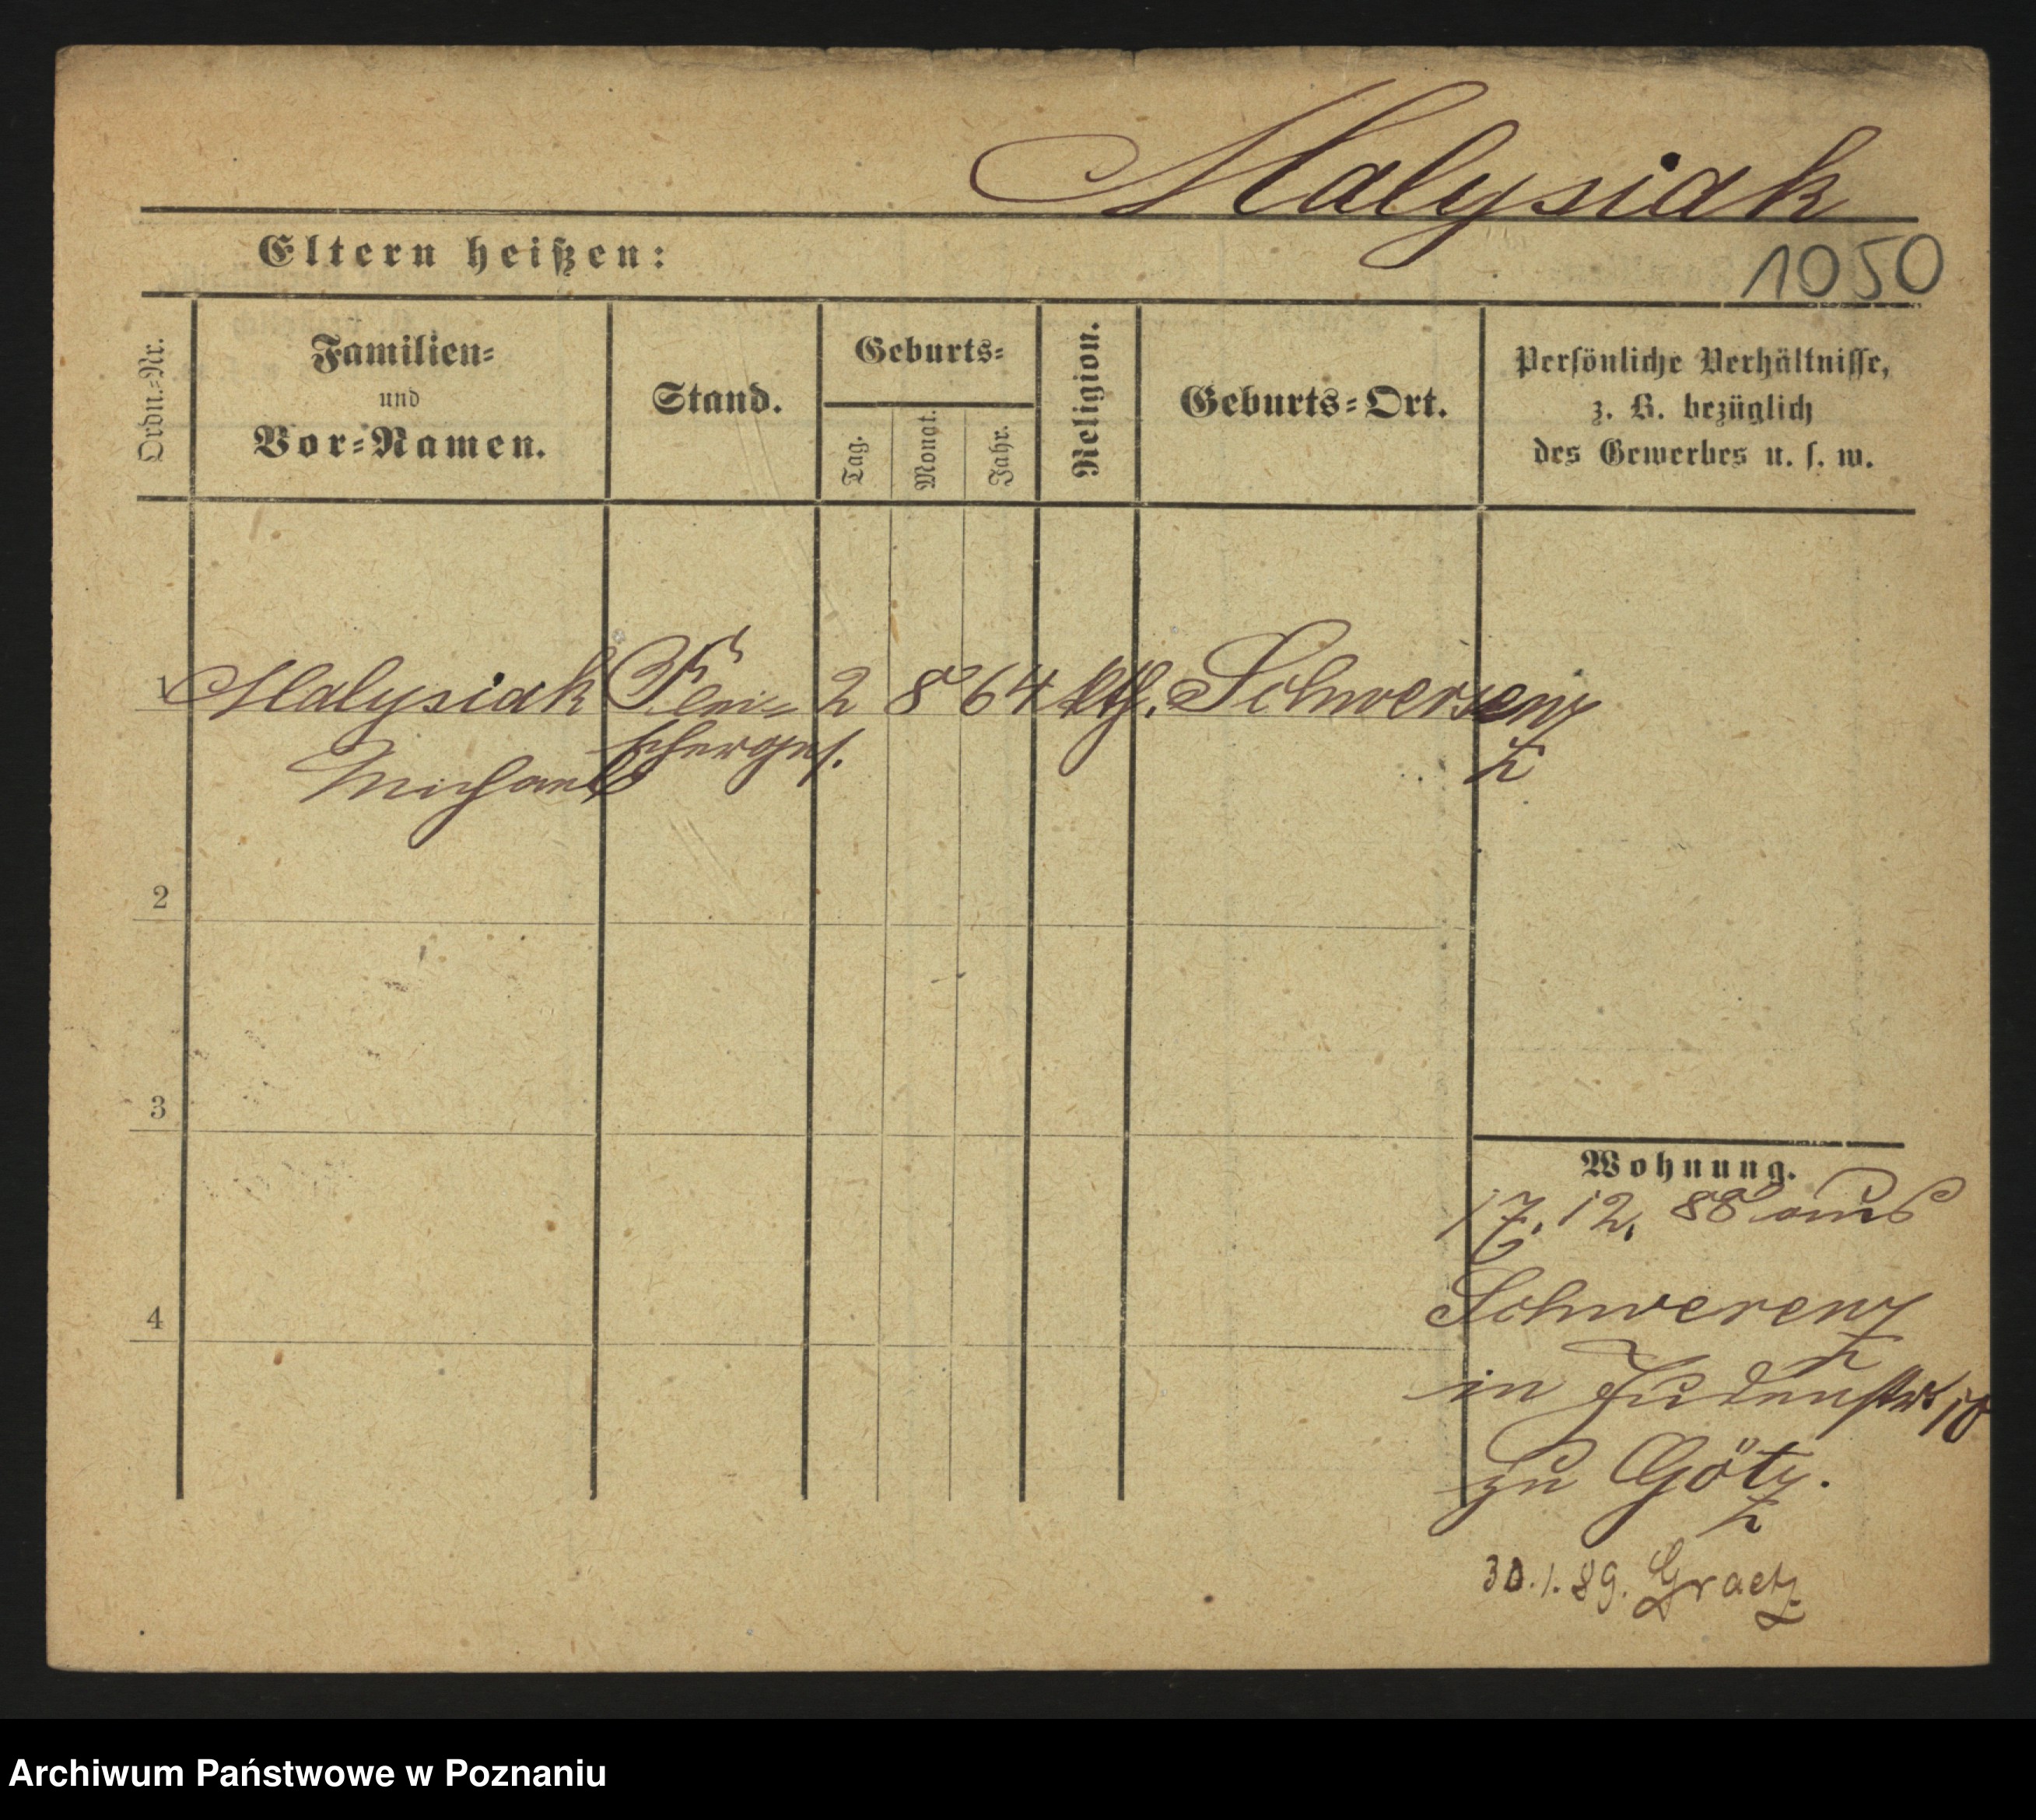 Malysiak
Eltern heißen:
1050
Ordn.=Nr.
Familien=
und
Vor=Namen.
Stand.
Geburts=
Tag.
Monat.
Jahr.
Religion.
Geburts=Ort.
Persönliche Verhältnisse,
z. B. bezüglich
des Gewerbes u. s. w.
1 Malysiak Flei= 2 8 64 kth. Schwersenz
Michael scherges.
2
3
4
Wohnung.
17. 12. 88 aus
Schwerenz
in Judenstr 18
zu Götz.
30.1.89. Graetz
Archiwum Państwowe w Poznaniu